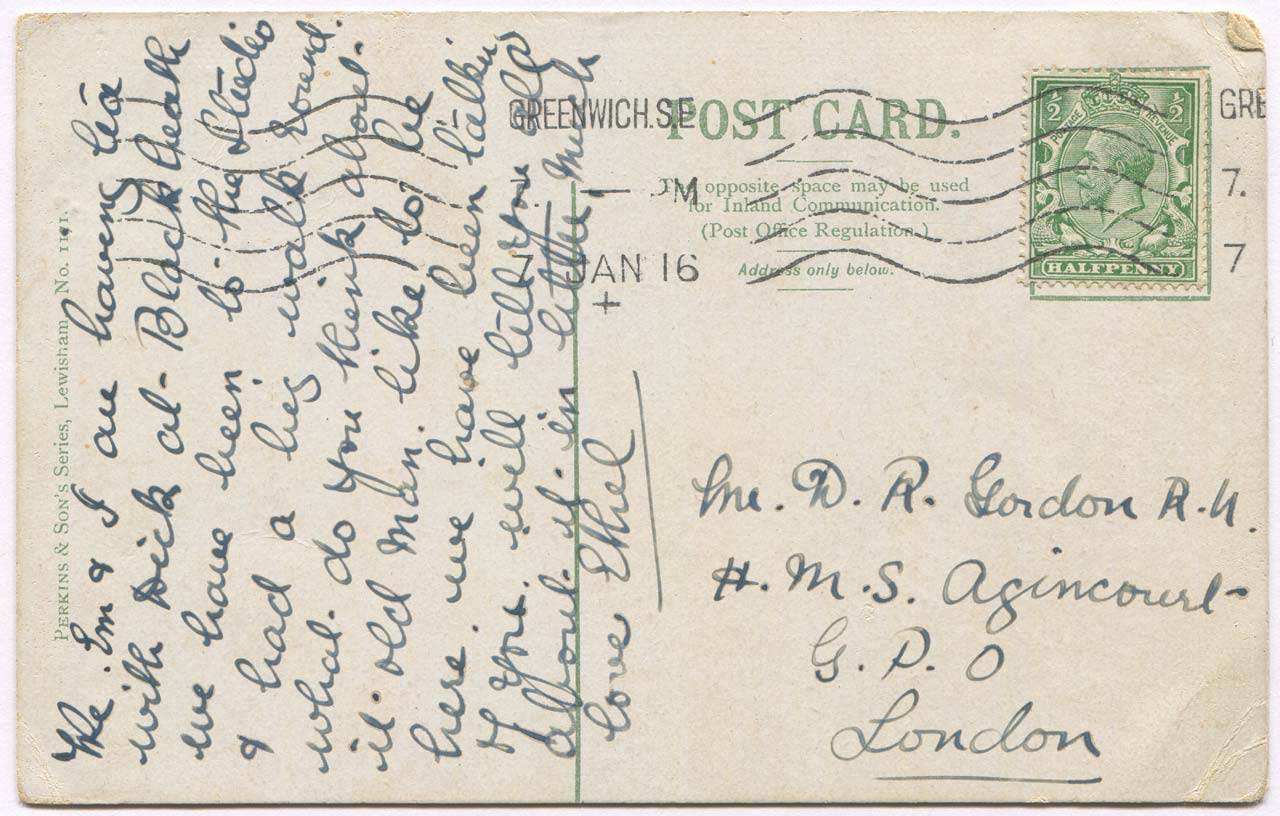 PERKINS & SON'S SERIES, LEWISHAM. No. 1121.
Em & I are having tea
with Dick at Blackheath
we have been to the Studio
& had a big walk round.
what do you think about
it old man. like to be
here. we have been talkin
of you. will tell you all
about it in letter, much
love Ethel
GREENWICH.S.E
7 JAN 16
+
POST CARD.
The opposite space may be used
for Inland Communication.
(Post Office Regulation.)
Address only below.
POSTAGE REVENUE
½ ½
HALFPENNY
GRE
7.
7
Mr. D. R. Gordon R.N.
H.M.S. Agincourt
G.P.O
London